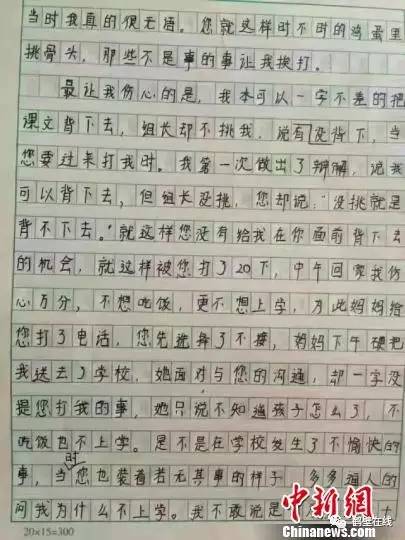 当时我真的很无语。您就这样时不时的鸡蛋里
挑骨头,那些不是事的事让我挨打。
最让我伤心的是,我本可以一字不差的把
课文背下去,组长却不挑我,说有没背下,当
您要过来打我时。我第一次做出了辩解,说我
可以背下去,但组长没挑,您却说:“没挑就是
背不下去。”就这样您没有给我在你面前背下去
的机会,就这样被您打了20下,中午回家我伤
心万分,不想吃饭,更不想上学,为此妈妈给
您打了电话,您先选择了不接,妈妈下午硬把
我送去了学校,她面对与您的沟通,却一字没
提您打我的事,她只说不知道孩子怎么了,不
吃饭也不上学。是不是在学校发生了不愉快的
事,当时您也装着若无其事的样子,多多逼人的
问我为什么不上学。我不敢说是
中新网
WWW.
Chinanews.com
鹤壁在线
20×15=300